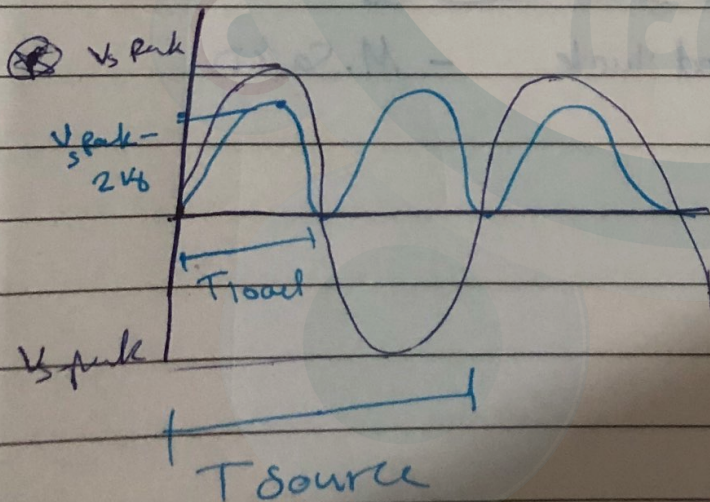 Vs Peak
Vs peak -
2 V8
T load
Vs peak
T source